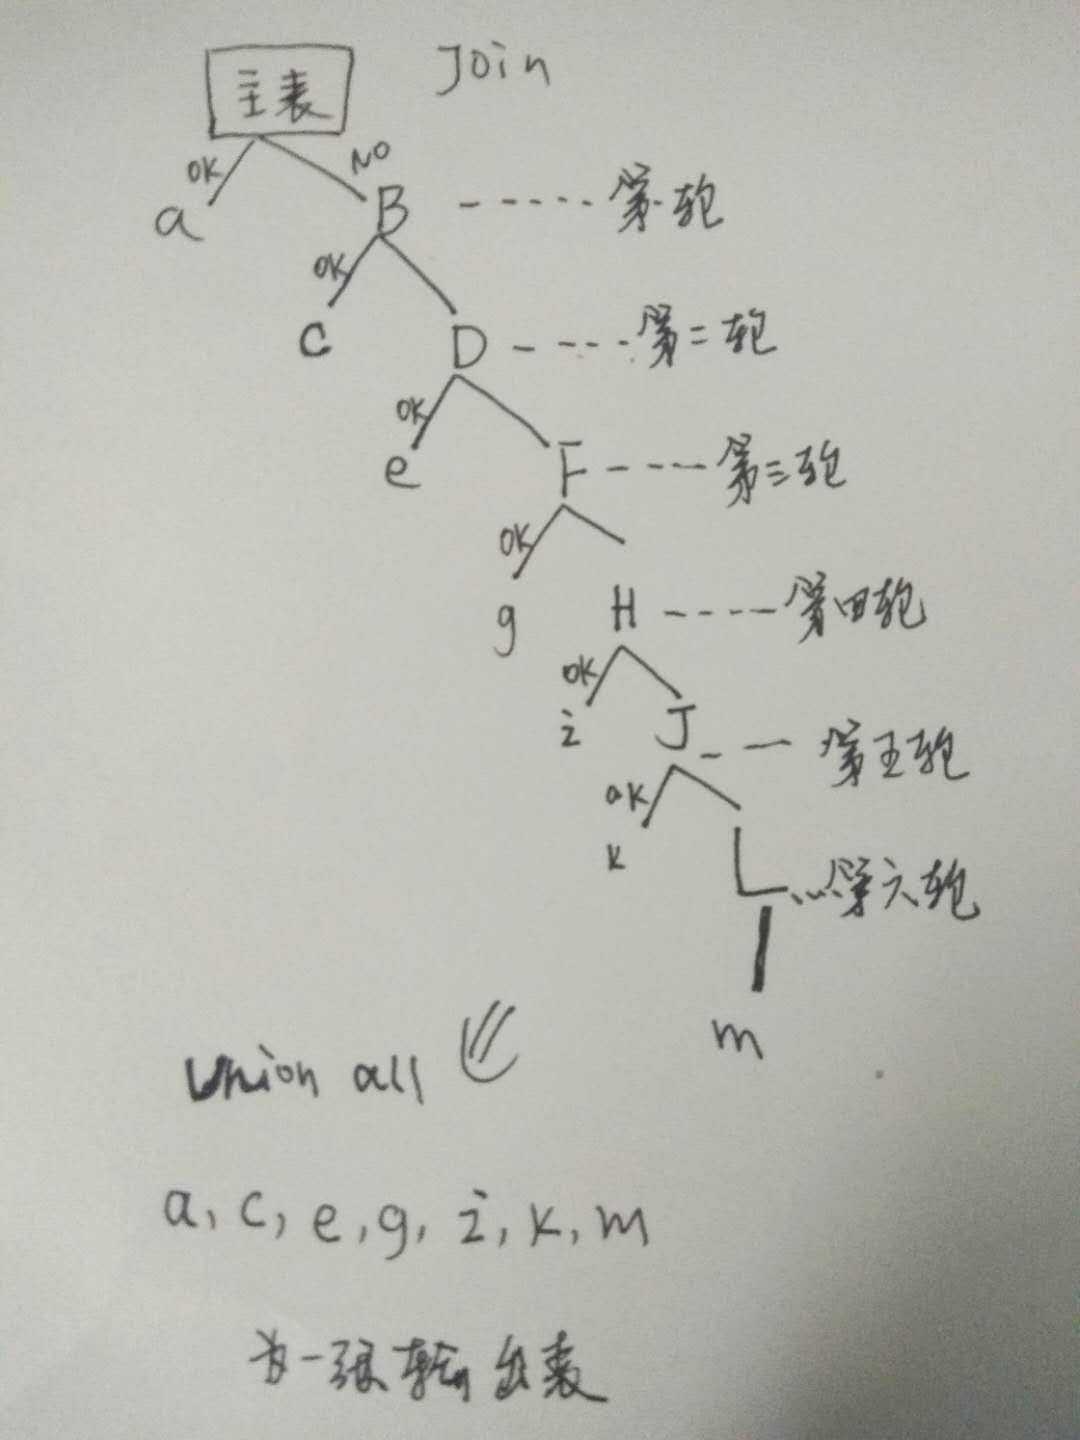 主表 Join
OK NO
a B 第一轮
OK
c D 第二轮
OK
e F 第三轮
OK
g H 第四轮
OK
i J 第五轮
OK
k L 第六轮
m
Union all
a, c, e, g, i, k, m
为一张输出表